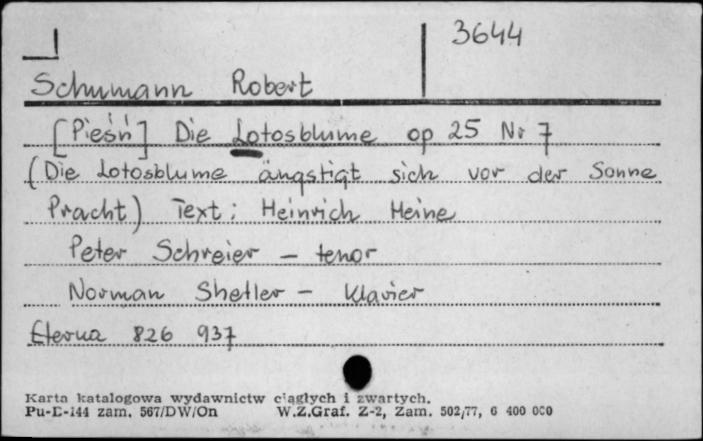 3644
Schumann Robert
[Pieśń] Die Lotosblume op 25 Nr 7
(Die Lotosblume ängstigt sich vor der Sonne
Pracht) Text: Heinrich Heine
Peter Schreier - tenor
Norman Shetler - Klavier
Eterna 826 937
Karta katalogowa wydawnictw ciągłych i zwartych.
Pu-D-144 zam. 567/DW/On W.Z.Graf. Z-2, Zam. 502/77, 6 400 000